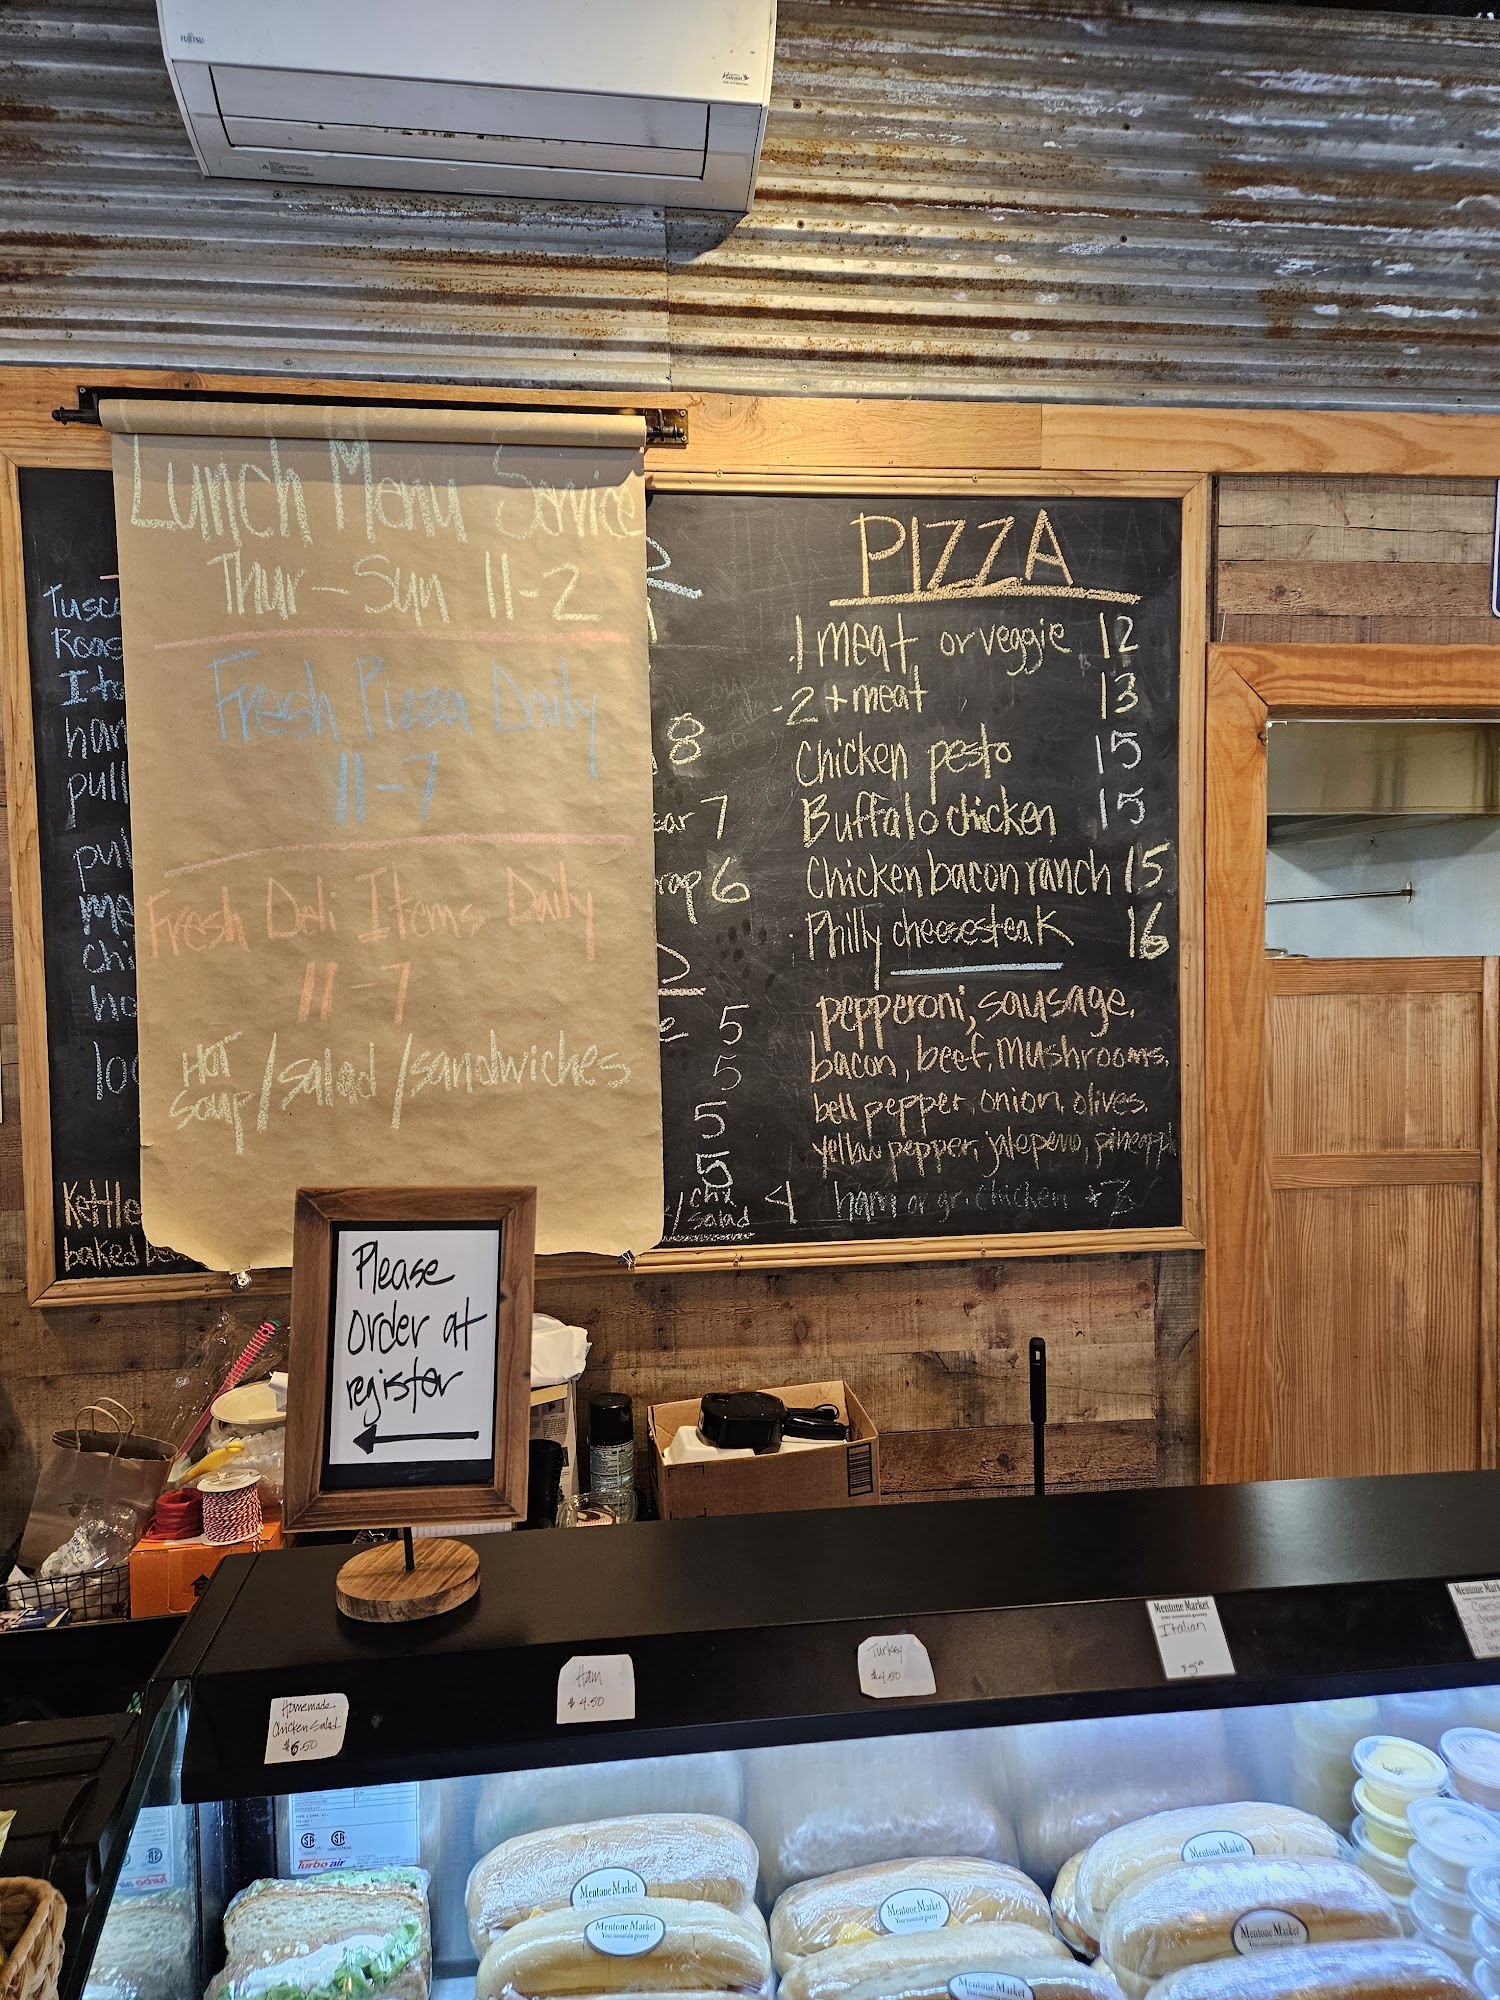 FUJITSU
Halcyon
Lunch Menu Service
Thur-Sun 11-2
Fresh Pizza Daily
11-7
Fresh Deli Items Daily
11-7
HOT
soup/salad/sandwiches
Kettle
baked
8
7
6
5
5
5
5
salad
4
PIZZA
1 meat or veggie 12
2+meat 13
Chicken pesto 15
Buffalo chicken 15
Chicken bacon ranch 15
Philly cheesesteak 16
pepperoni, sausage,
bacon, beef, mushrooms,
bell pepper, onion, olives,
yellow pepper, jalepeno, pineappl
ham or gr. chicken
Please
order at
register
Homemade
Chicken Salad
$6.50
Ham
$4.50
Turkey
$4.50
Mentone Market
your mountain grocery
Italian
Mentone Mark
Turbo air
Mentone Market
Mentone Market
Your mountain grocery
Mentone Market
Your mountain grocery
Mentone Market
Mentone Market
Mentone Market